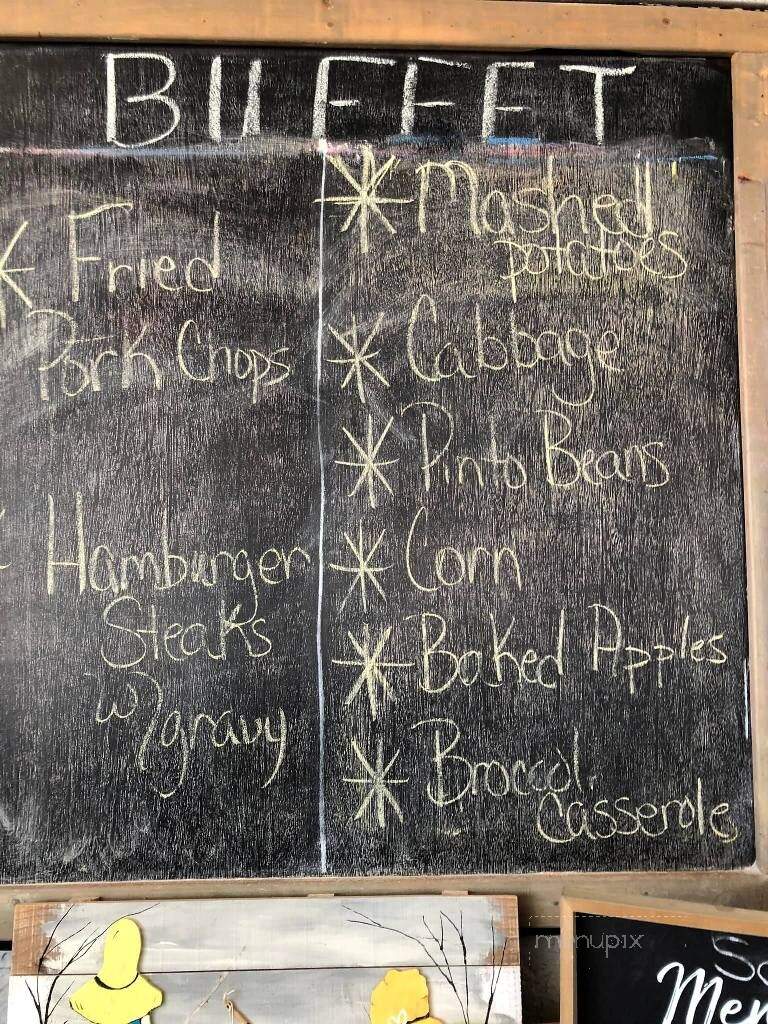 BUFFET
* Fried
Pork Chops
* Hamburger
Steaks
w/gravy
* Mashed
potatoes
* Cabbage
* Pinto Beans
* Corn
* Baked Apples
* Broccoli
Casserole
menupix